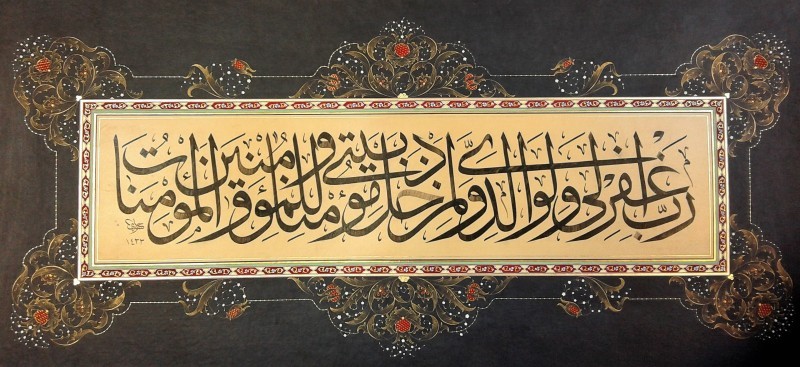 رَبِّ اغْفِرْ لِي وَلِوَالِدَيَّ وَلِمَنْ دَخَلَ بَيْتِيَ مُؤْمِنًا وَلِلْمُؤْمِنِينَ وَالْمُؤْمِنَاتِ
١٤٣٣